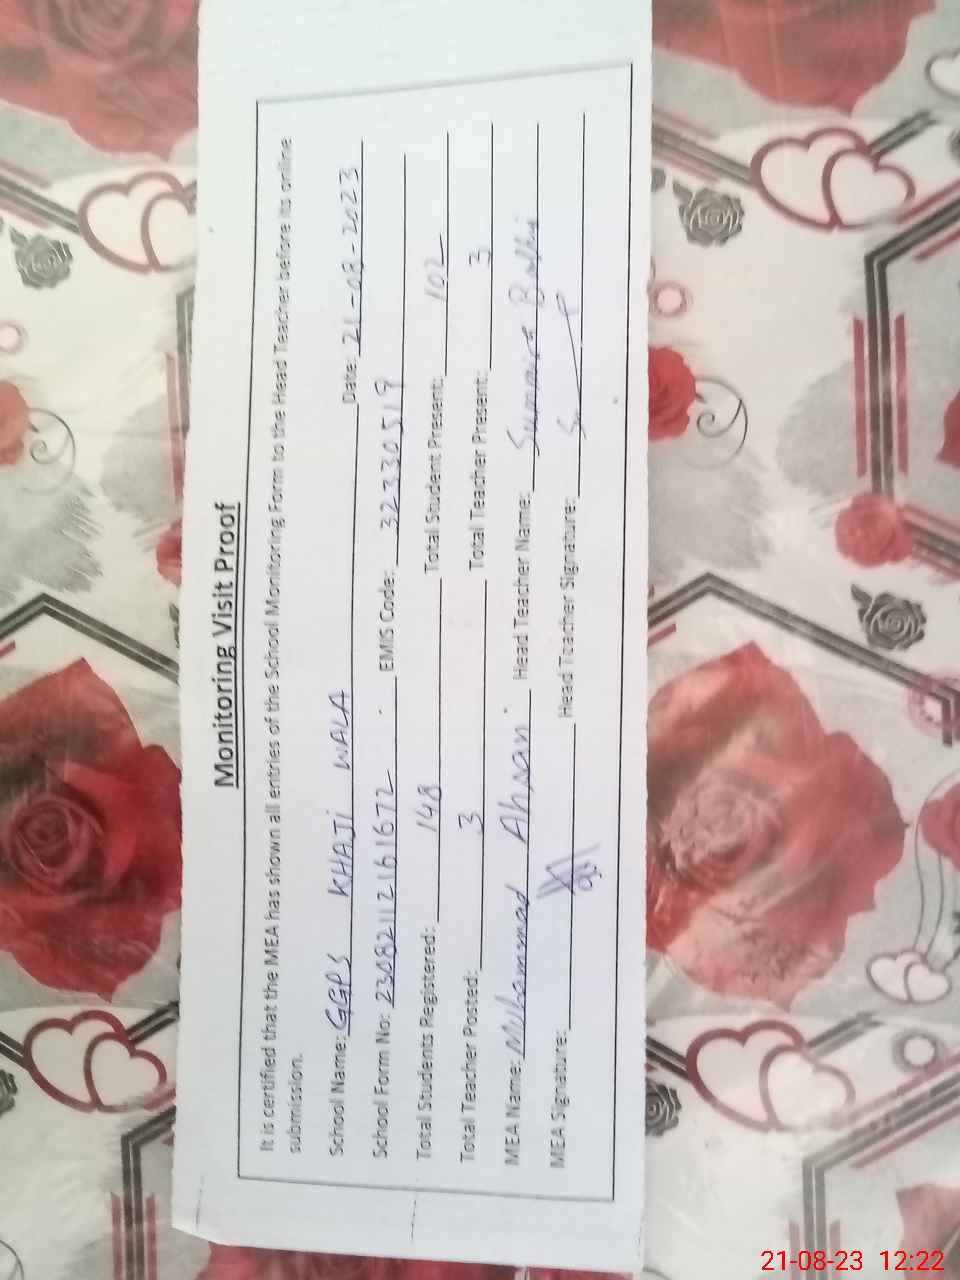 Monitoring Visit Proof
It is certified that the MEA has shown all entries of the School Monitoring Form to the Head Teacher before its online
submission.
School Name: GGPS KHAJI WALA Date: 21-08-2023
School Form No: 23082112161672 EMIS Code: 32330519
Total Students Registered: 148 Total Student Present: 102
Total Teacher Posted: 3 Total Teacher Present: 3
MEA Name: Muhammad Ahsan Head Teacher Name: Summaira
MEA Signature: Head Teacher Signature:
21-08-23 12:22